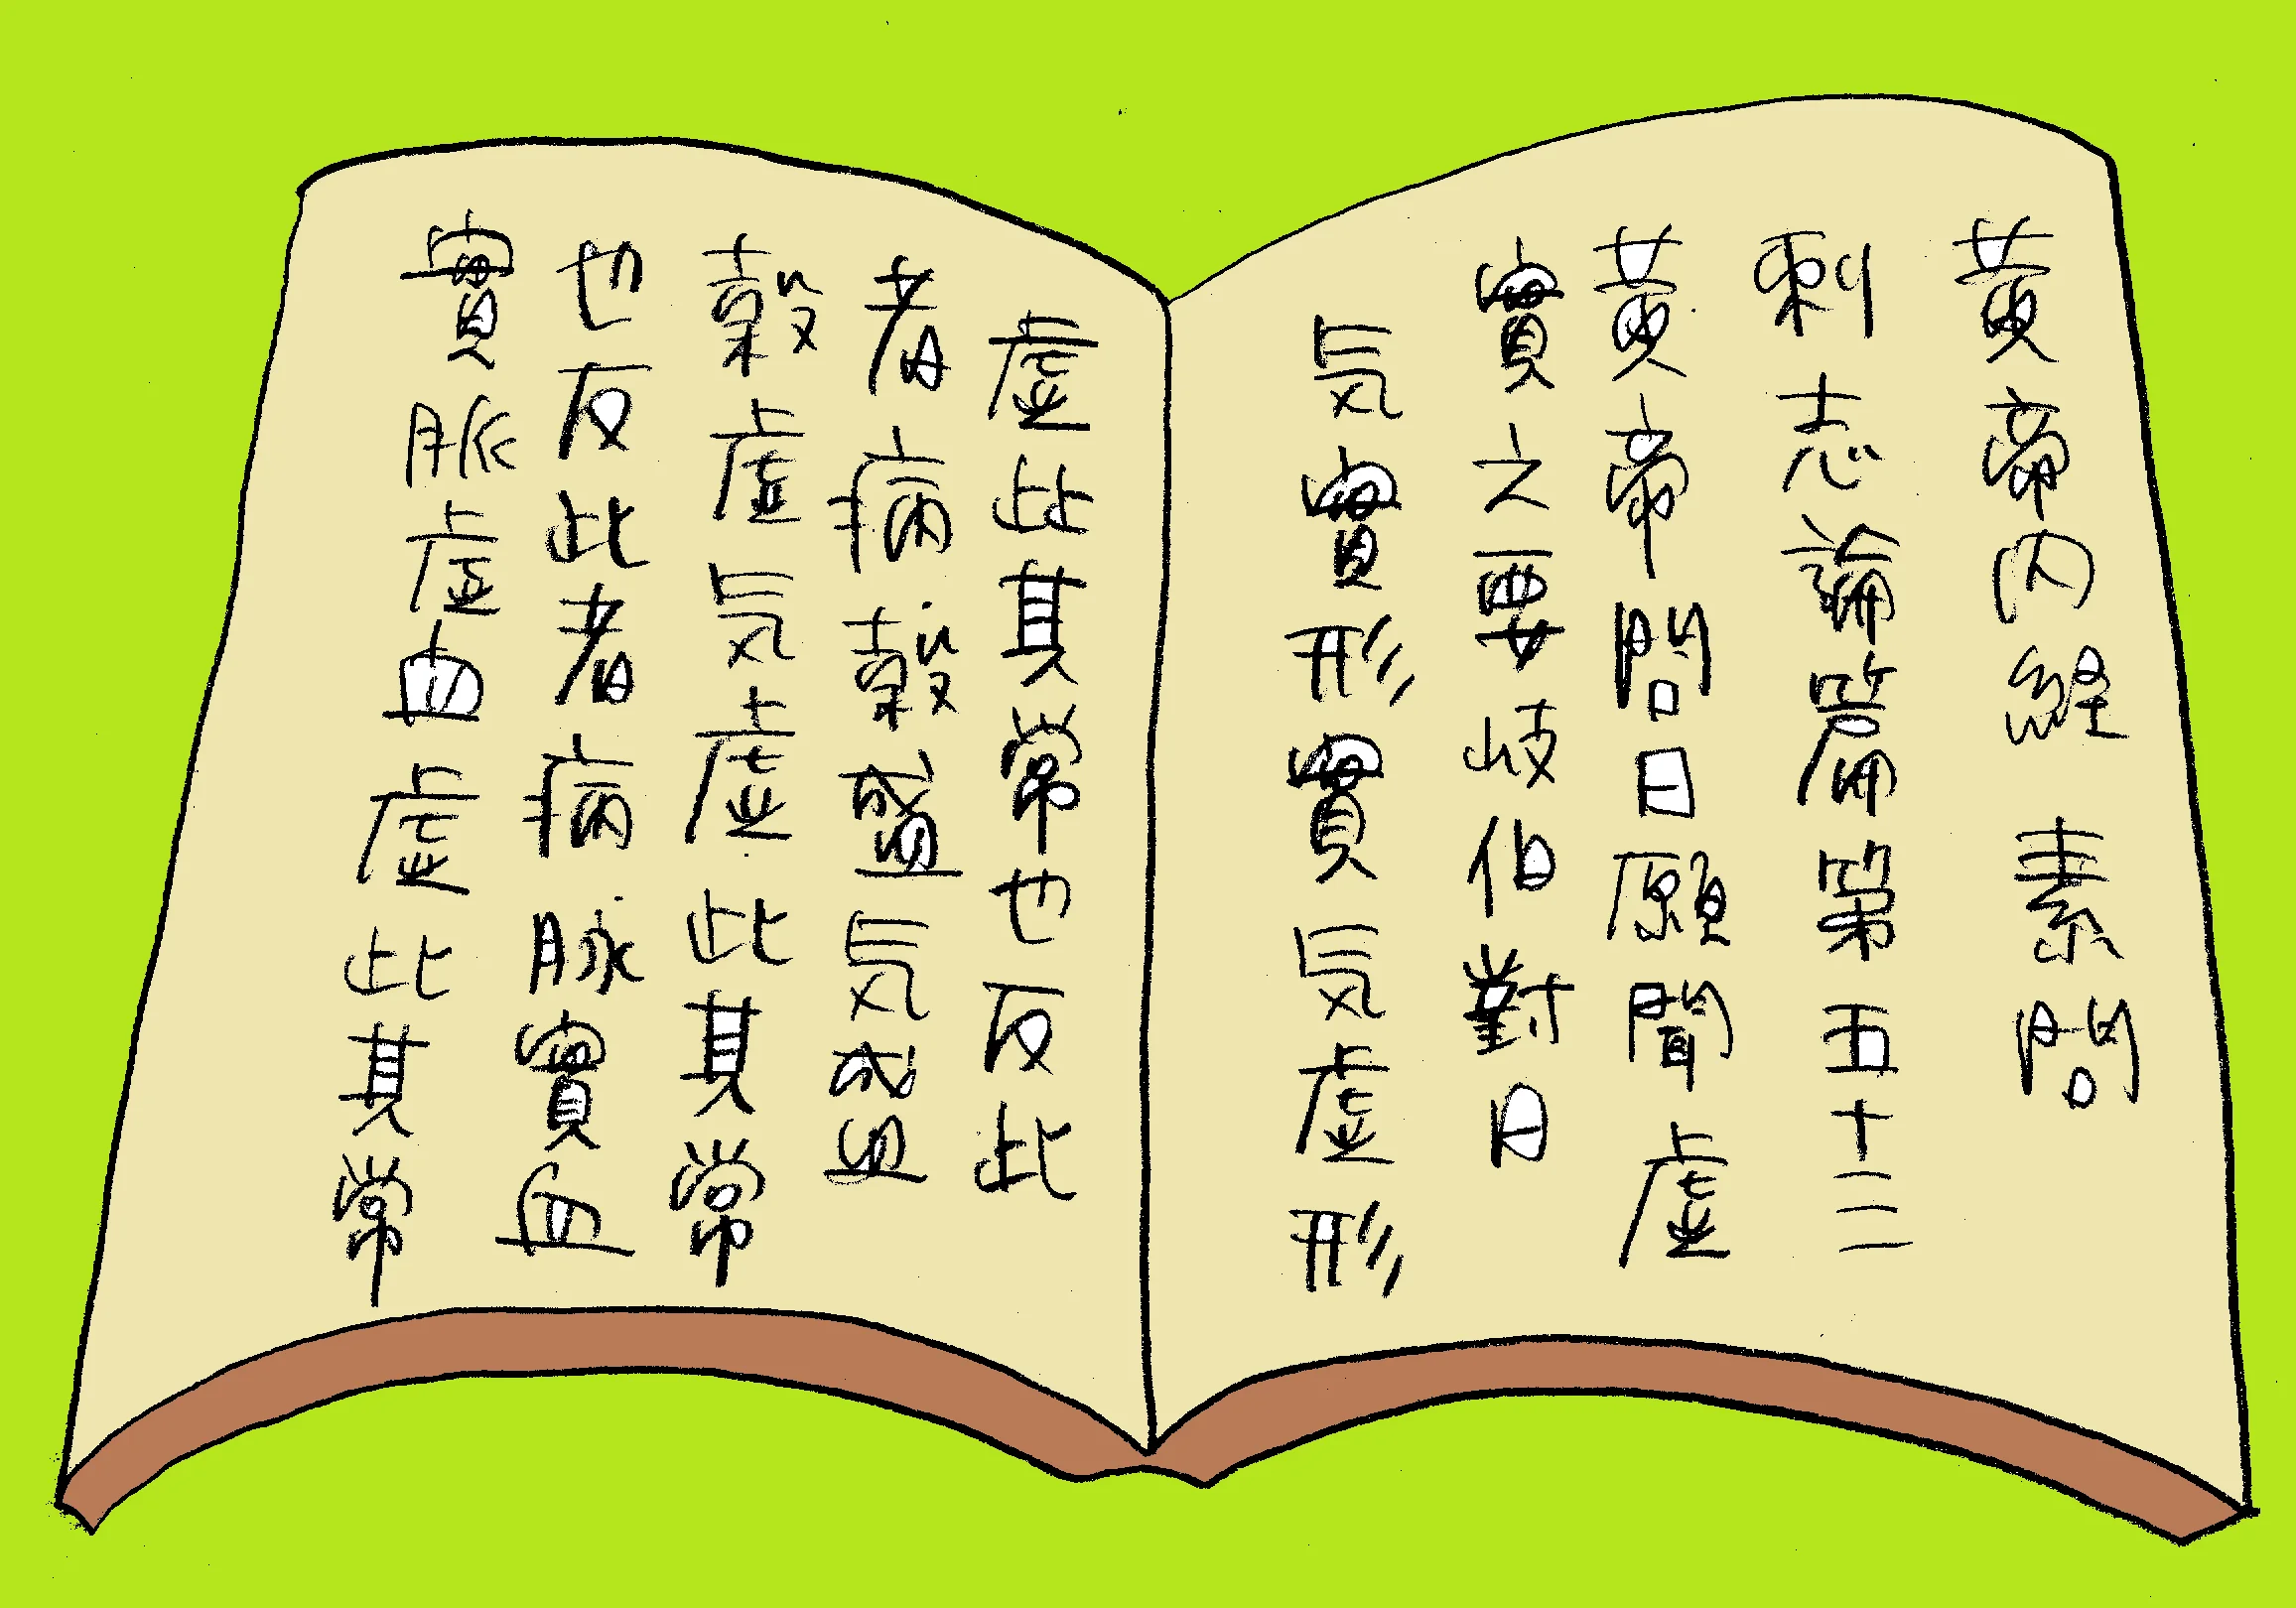 黄帝内経 素問
刺志論篇第五十三
黄帝問曰願聞虚
實之要岐伯對曰
気實形實気虚形
虚此其常也反此
者病穀盛気盛
穀虚気虚此其常
也反此者病脉實血
實脈虚血虚此其常